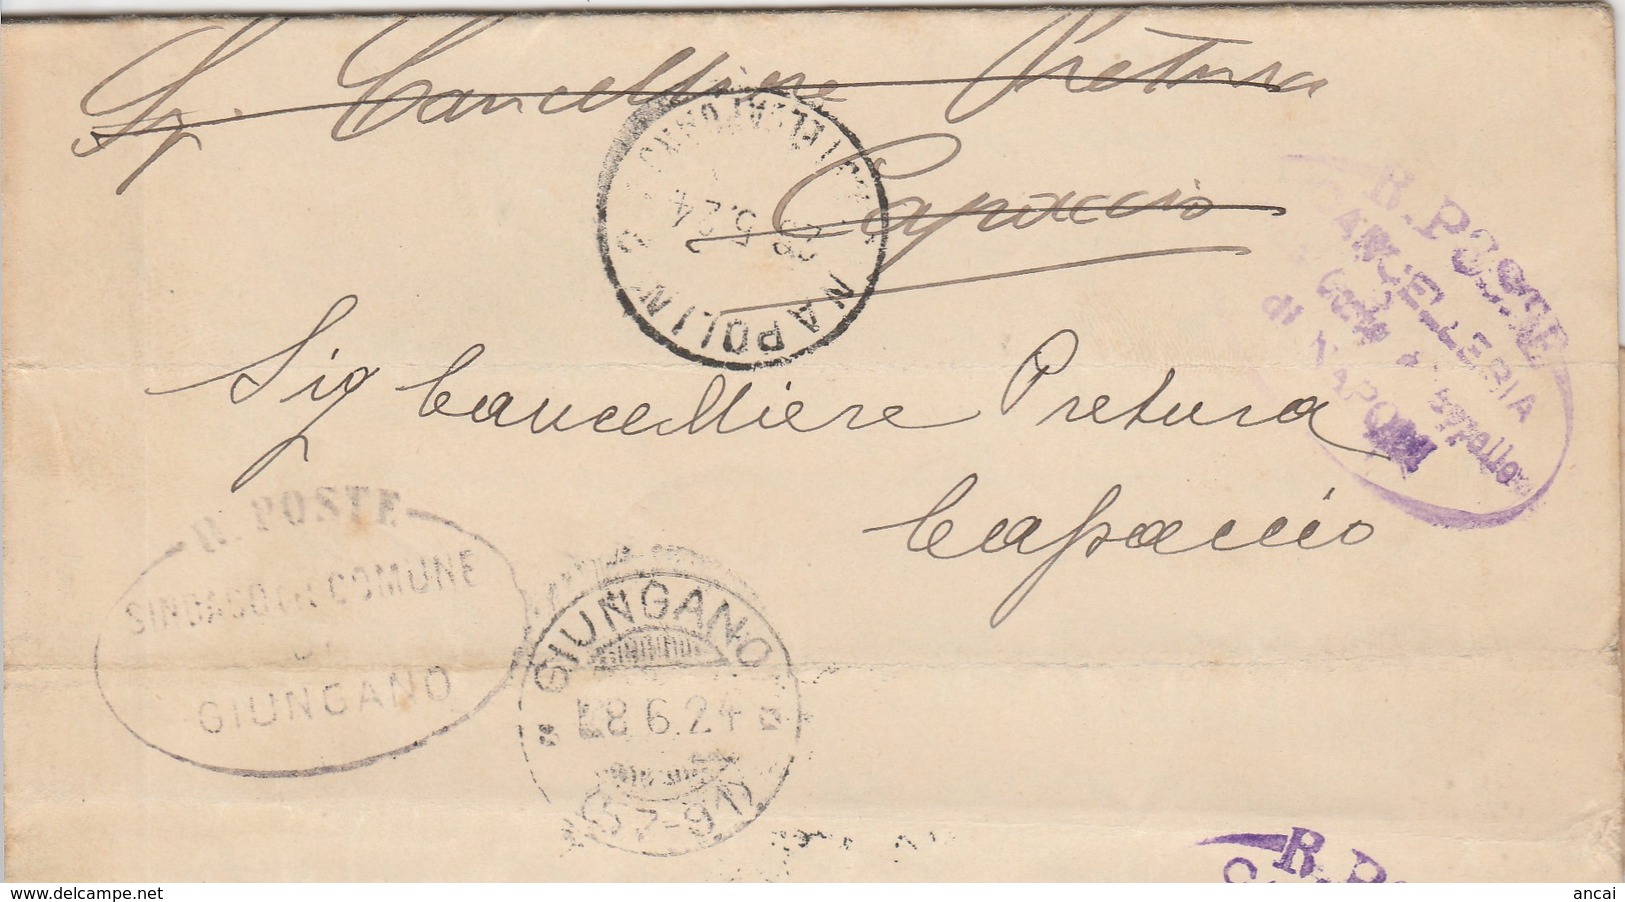 Sig. Cancelliere Pretura
Capaccio
NAPOLI
28.5.24
R. POSTE
CANCELLERIA
Corte d'Appello
di NAPOLI
Sig Cancelliere Pretura
Capaccio
R. POSTE
SINDACO DEL COMUNE
DI
GIUNGANO
GIUNGANO
8 6.24
(57-91)
R. PO
ancai
delcampe.net